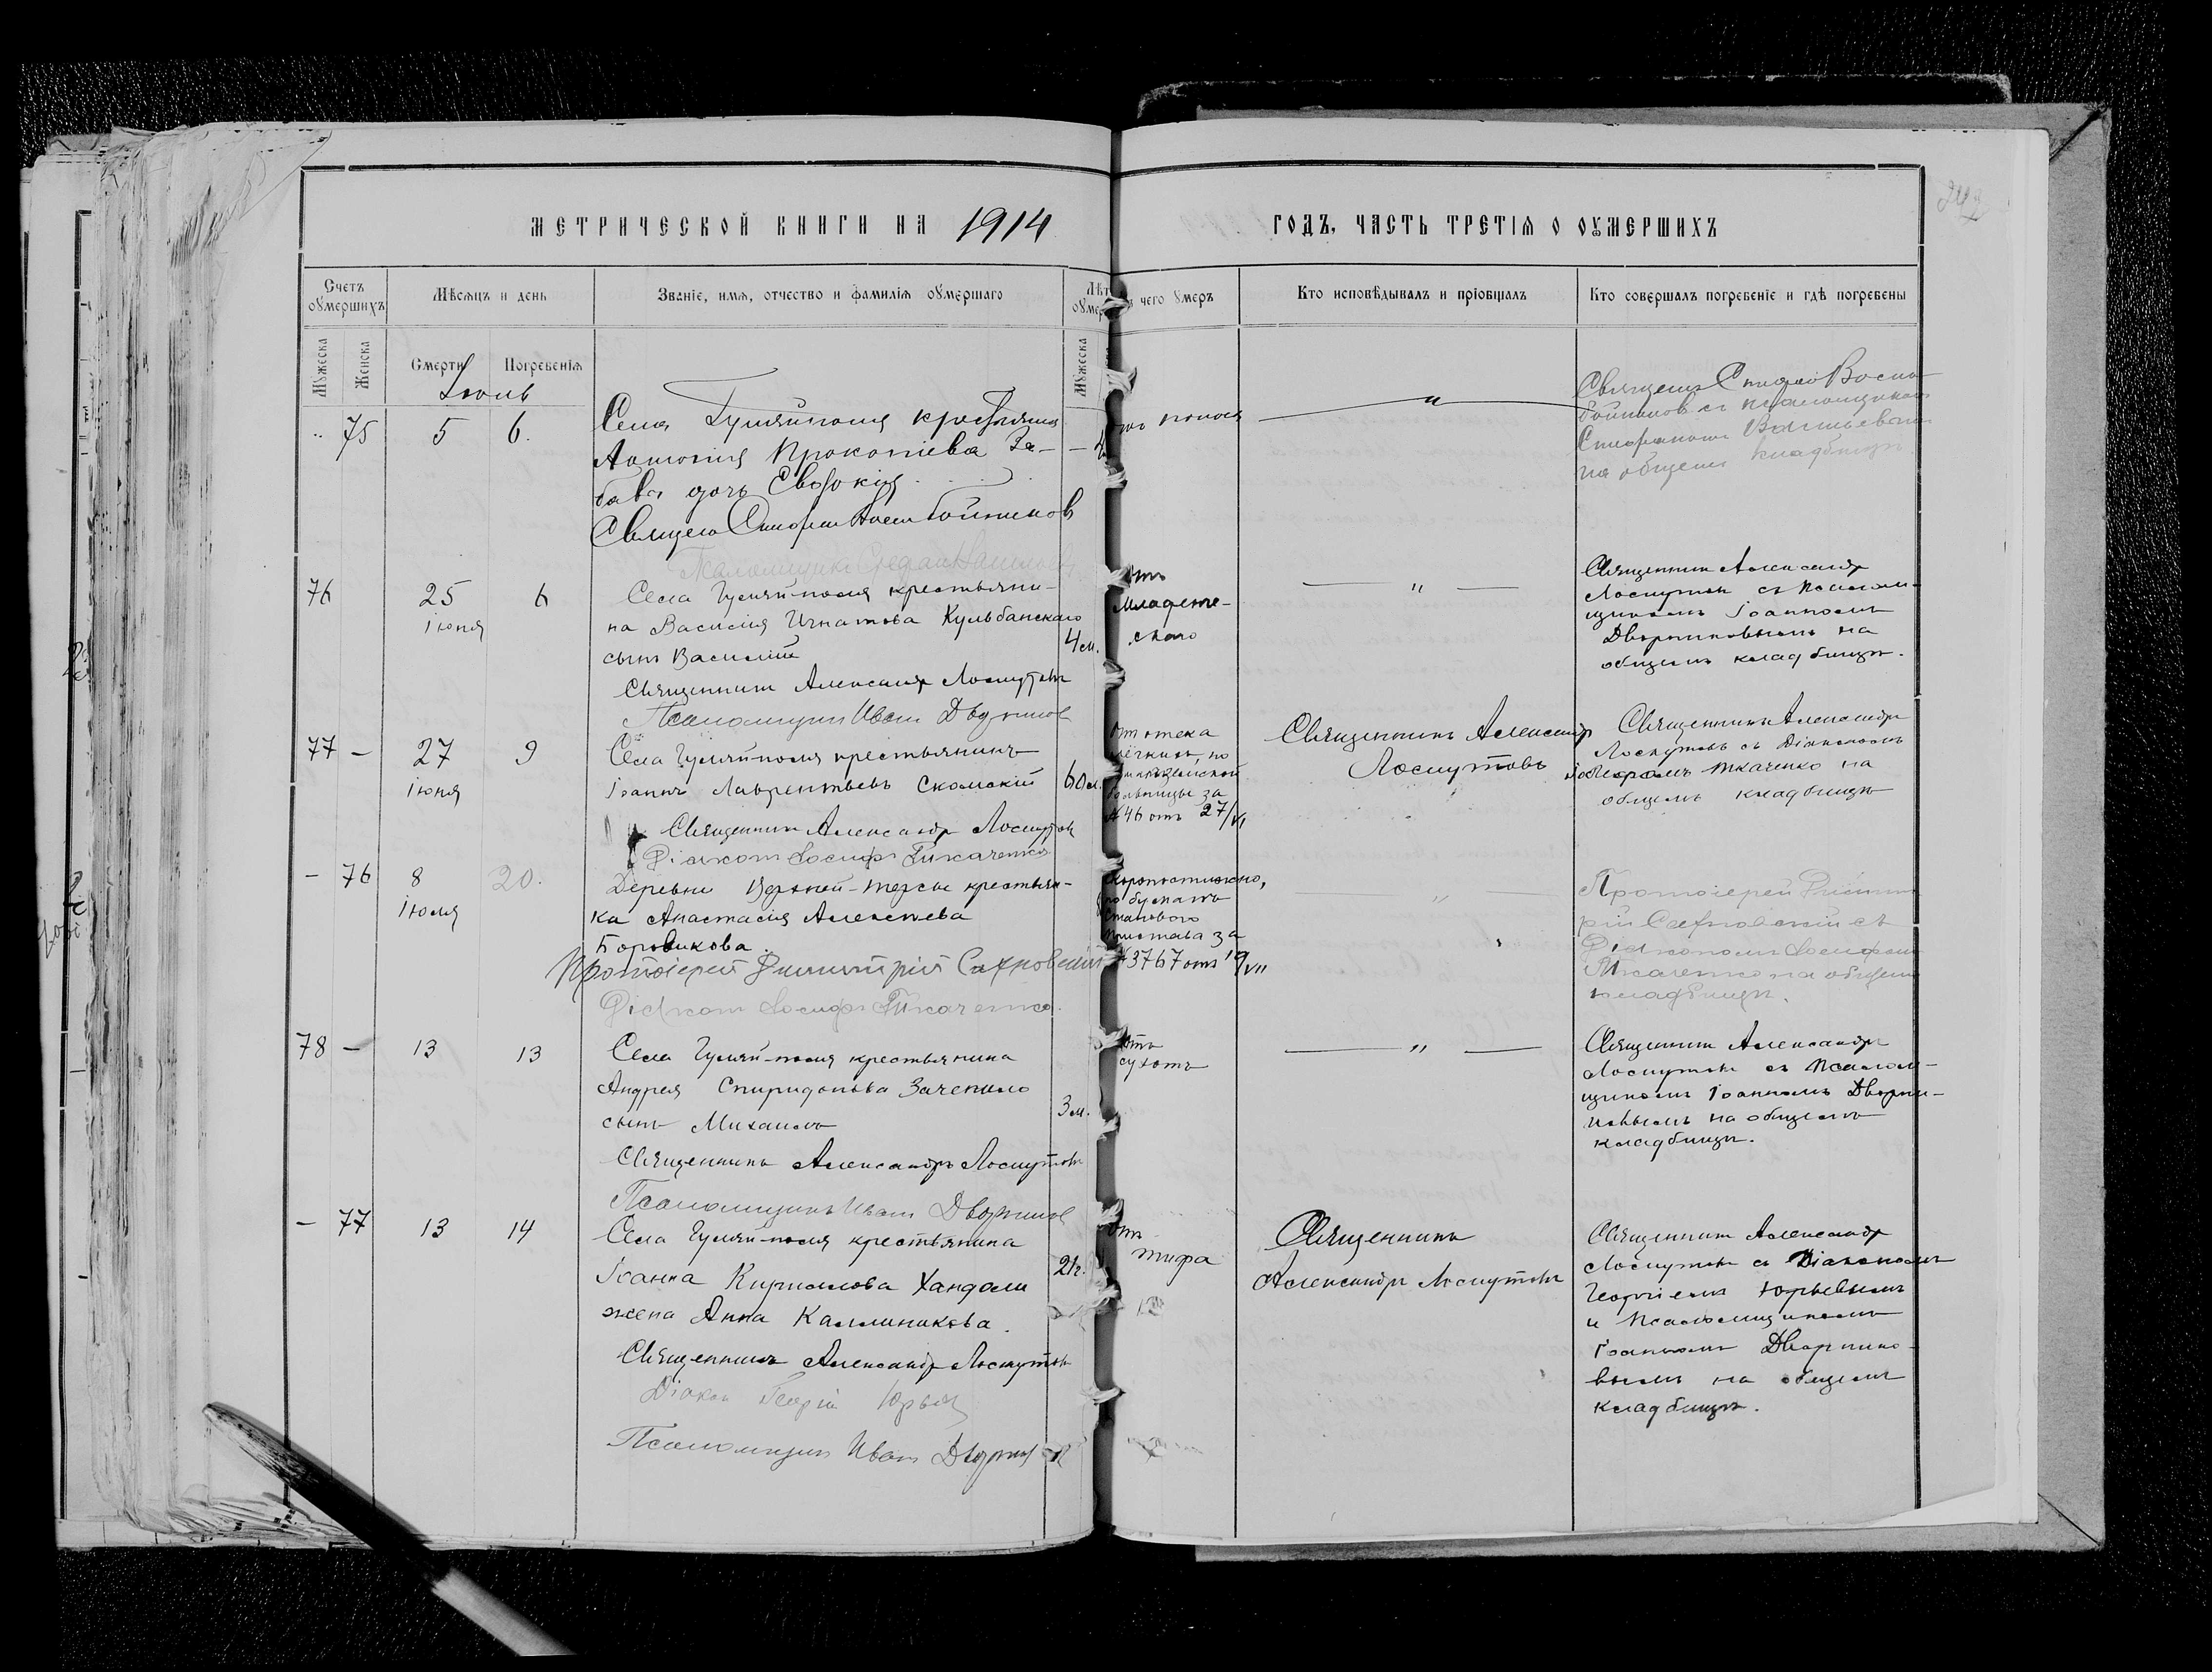 МЕТРИЧЕСКОЙ КНИГИ НА 1914 ГОДЪ, ЧАСТЬ ТРЕТІЯ О ОУМЕРШИХЪ
Счетъ оумершихъ
Мѣсяцъ и день
Званіе, имя, отчество и фамилія оумершаго
Лѣт
оумер
чего умеръ
Кто исповѣдывалъ и пріобщалъ
Кто совершалъ погребеніе и гдѣ погребены
Мужеска
Женска
Смерти
Погребенія
Мужеска
Іюль
75
5
6.
Села Гуляйполя крестьянина
Антонія Прокопіева За-
бава дочь Евдокія
Священ Стефан Воскобойников
отъ поноса
"
Священ Стефан Воско
бойников съ псаломщиком
Стефаном
на общем кладбищѣ.
76
25
іюня
6
Села Гуляй-поля крестьяни-
на Василія Игнатова Кульбанскаго
сынъ Василій
Священникъ Александр Лоскутовъ
Псаломщик Иван Дворников
4 м.
Отъ
младенче-
скаго
"
Священник Александр
Лоскутовъ съ псалом-
щикомъ Іоанномъ
Дворниковымъ на
общемъ кладбищѣ.
77 -
27
іюня
9
Села Гуляй-поля крестьянинъ
Іоаннъ Лаврентьевъ Скомскій
Священникъ Александр Лоскутов
Діякон Іосиф Ткаченко
Отъ отека
легкихъ, по
больницы за
№ 46 отъ 27/VI
Священникъ Александр
Лоскутовъ
Священникъ Александръ
Лоскутовъ съ Діакономъ
Іосифомъ Ткаченко на
общемъ кладбищѣ
- 76
8
іюля
20.
Деревни Верхней-Терсы крестьян-
ка Анастасія Алексѣева
Боровикова.
Протоіерей Димитрій Сахновскій
Діякон Іосиф Ткаченко.
Скоропостижно,
станового
пристава за
№ 3767 отъ 19/VII
"
Протоіерей Димит
рій Сахновскій съ
Діякономъ Іосифом
Ткаченко на общем
кладбищѣ.
78 -
13
13
Села Гуляй-поля крестьянина
Андрея Спиридонова Зачепило
сынъ Михаилъ
Священникъ Александръ Лоскутовъ
Псаломщикъ Иван Дворников
3 м.
Отъ
сухотъ
"
Священник Александръ
Лоскутовъ съ Псалом-
щикомъ Іоанномъ Дворни-
ковымъ на общемъ
кладбищѣ.
- 77
13
14
Села Гуляй-поля крестьянина
Іоанна Кириллова Хандоли
жена Анна Каллиникова.
Священникъ Александр Лоскутовъ
Діакон Георгій Юрьев
Псаломщик Иван Дворников
21 г.
Отъ
тифа
Священникъ
Александръ Лоскутовъ
Священник Александр
Лоскутовъ съ Діакономъ
Георгіемъ Юрьевымъ
и Псаломщикомъ
Іоанномъ Дворнико-
вымъ на общемъ
кладбищѣ.